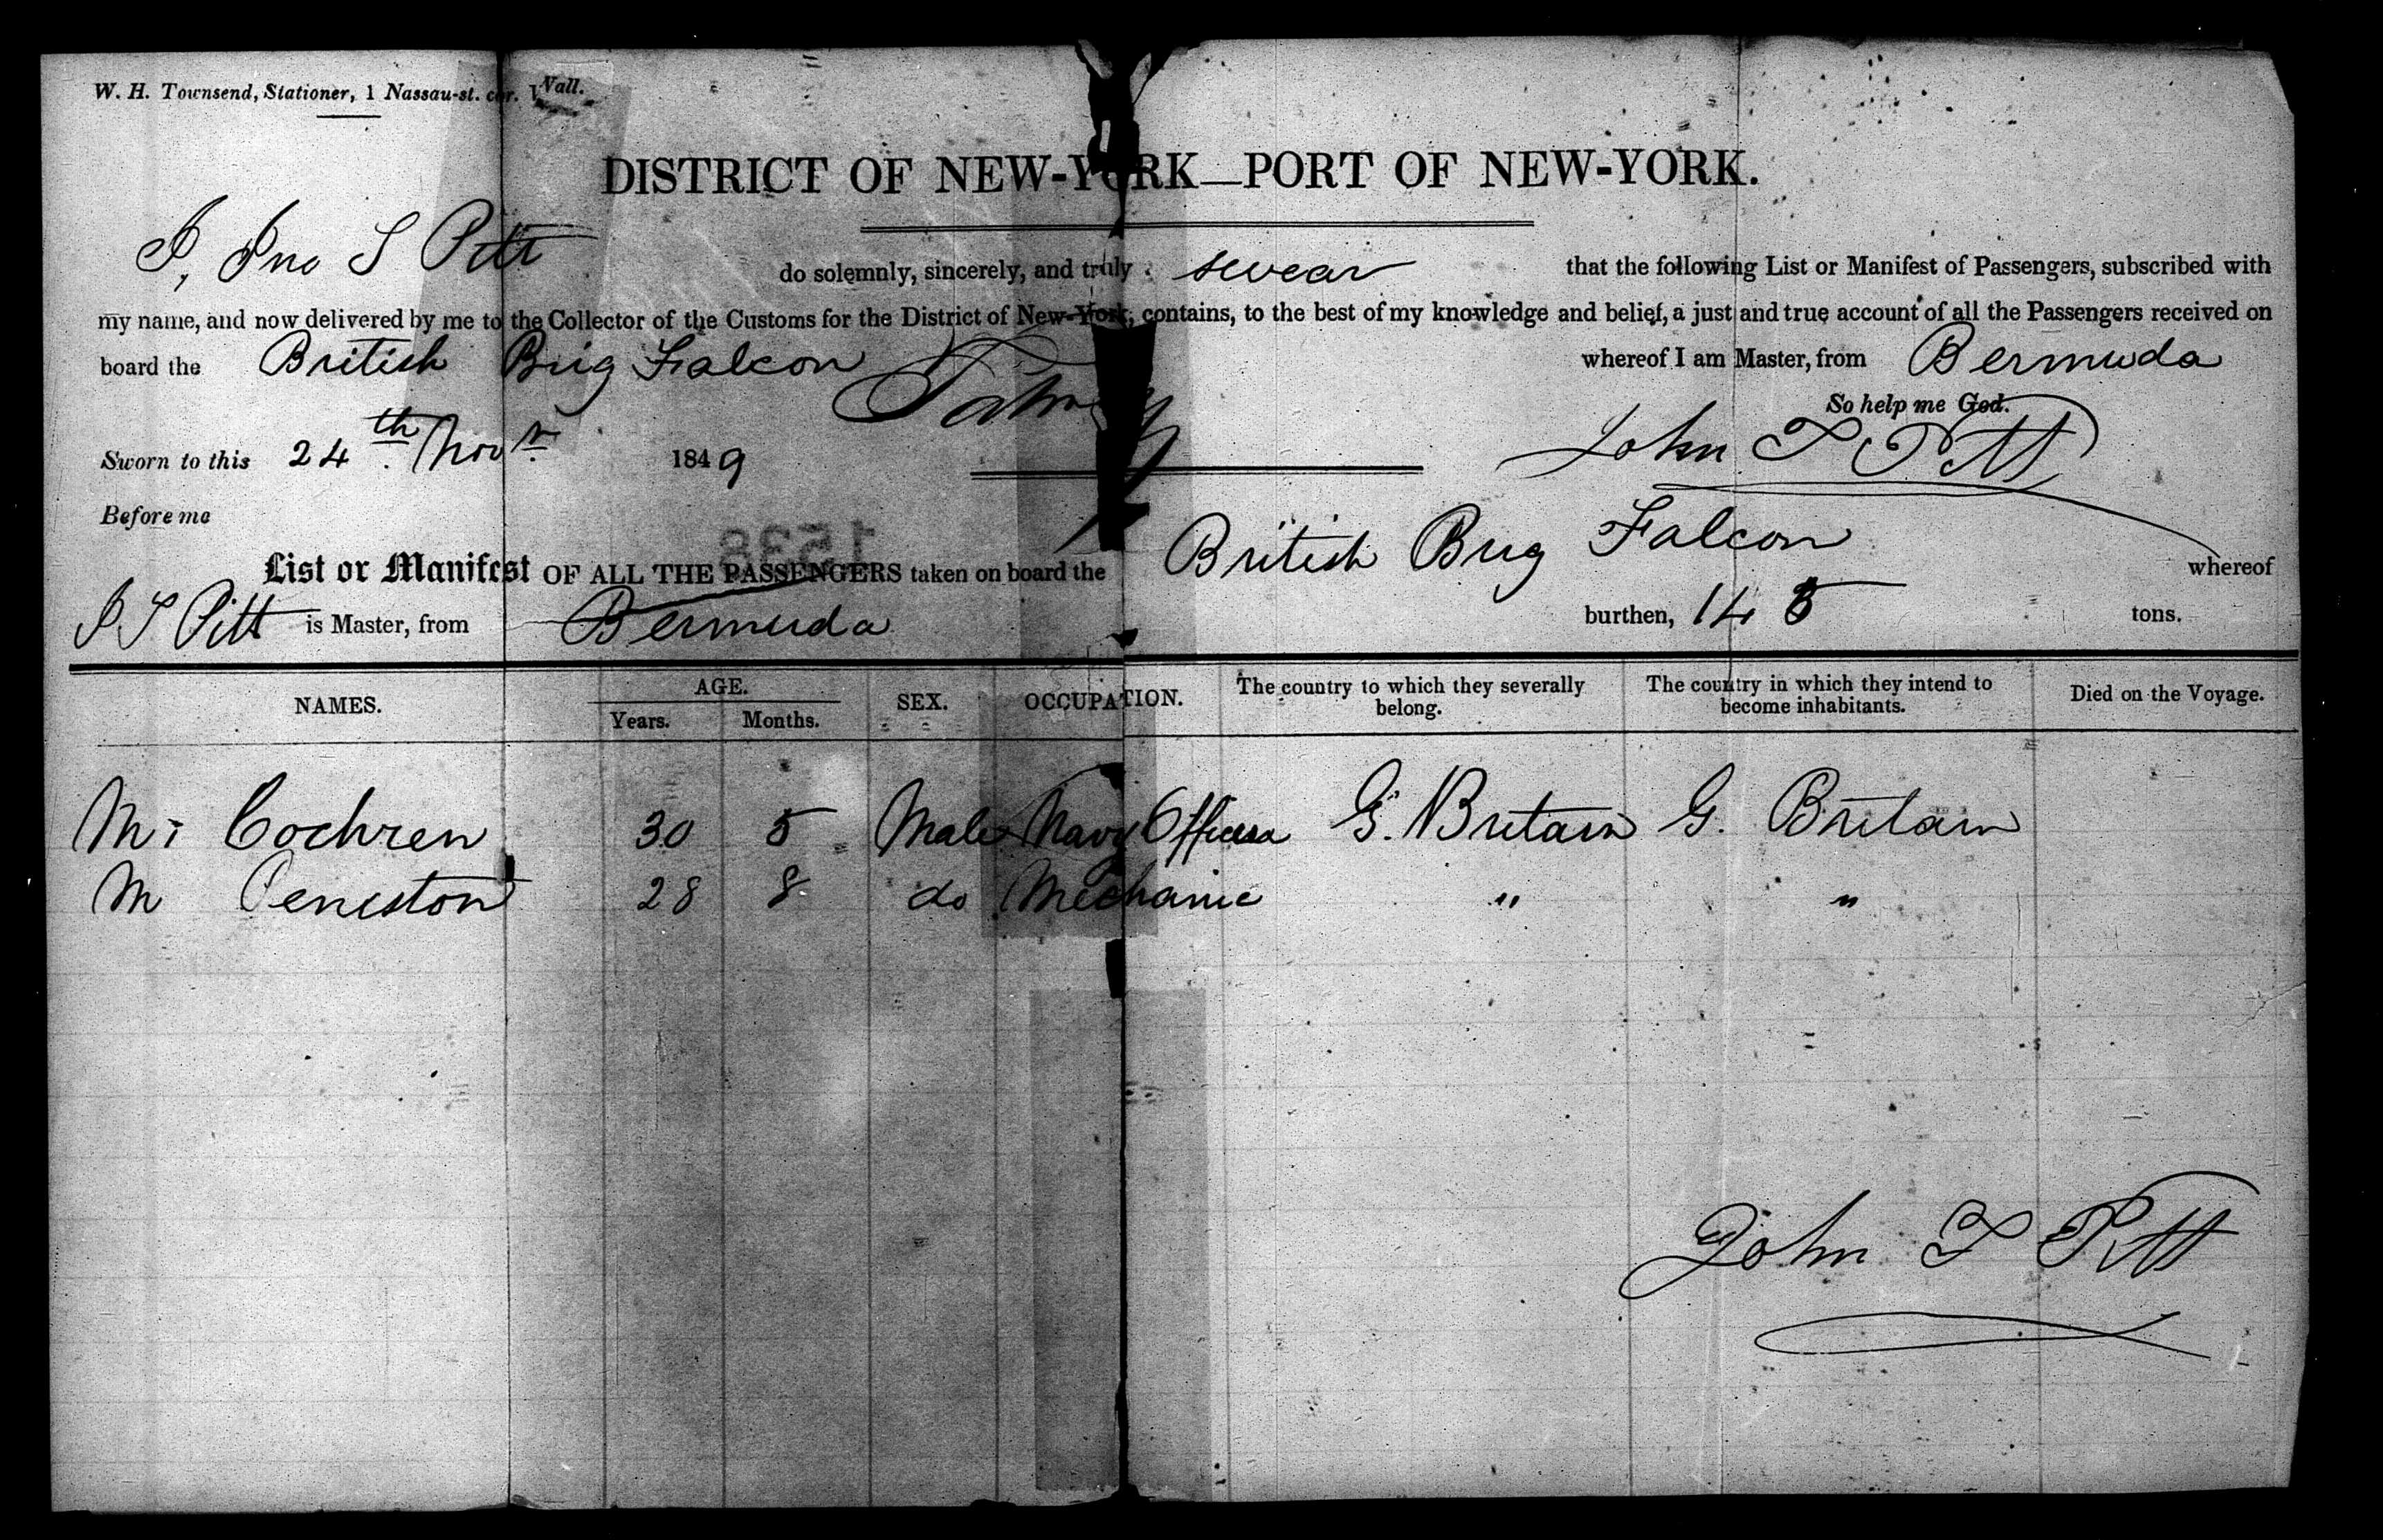 W. H. Townsend, Stationer, 1 Nassau-st. cor. Wall.
DISTRICT OF NEW-YORK—PORT OF NEW-YORK.
I, Jno S Pitt do solemnly, sincerely, and truly swear that the following List or Manifest of Passengers, subscribed with
my name, and now delivered by me to the Collector of the Customs for the District of New-York, contains, to the best of my knowledge and belief, a just and true account of all the Passengers received on
board the British Brig Falcon whereof I am Master, from Bermuda
So help me God.
Sworn to this 24th Novr 1849 John S Pitt
Before me
1538
List or Manifest OF ALL THE PASSENGERS taken on board the British Brig Falcon whereof
J S Pitt is Master, from Bermuda burthen, 145 tons.
NAMES. AGE. Years. Months. SEX. OCCUPATION. The country to which they severally belong. The country in which they intend to become inhabitants. Died on the Voyage.
Mr Cochren 30 5 Male Navy Officer G. Britain G. Britain
M Peniston 28 8 do Mechanic " "
John S Pitt